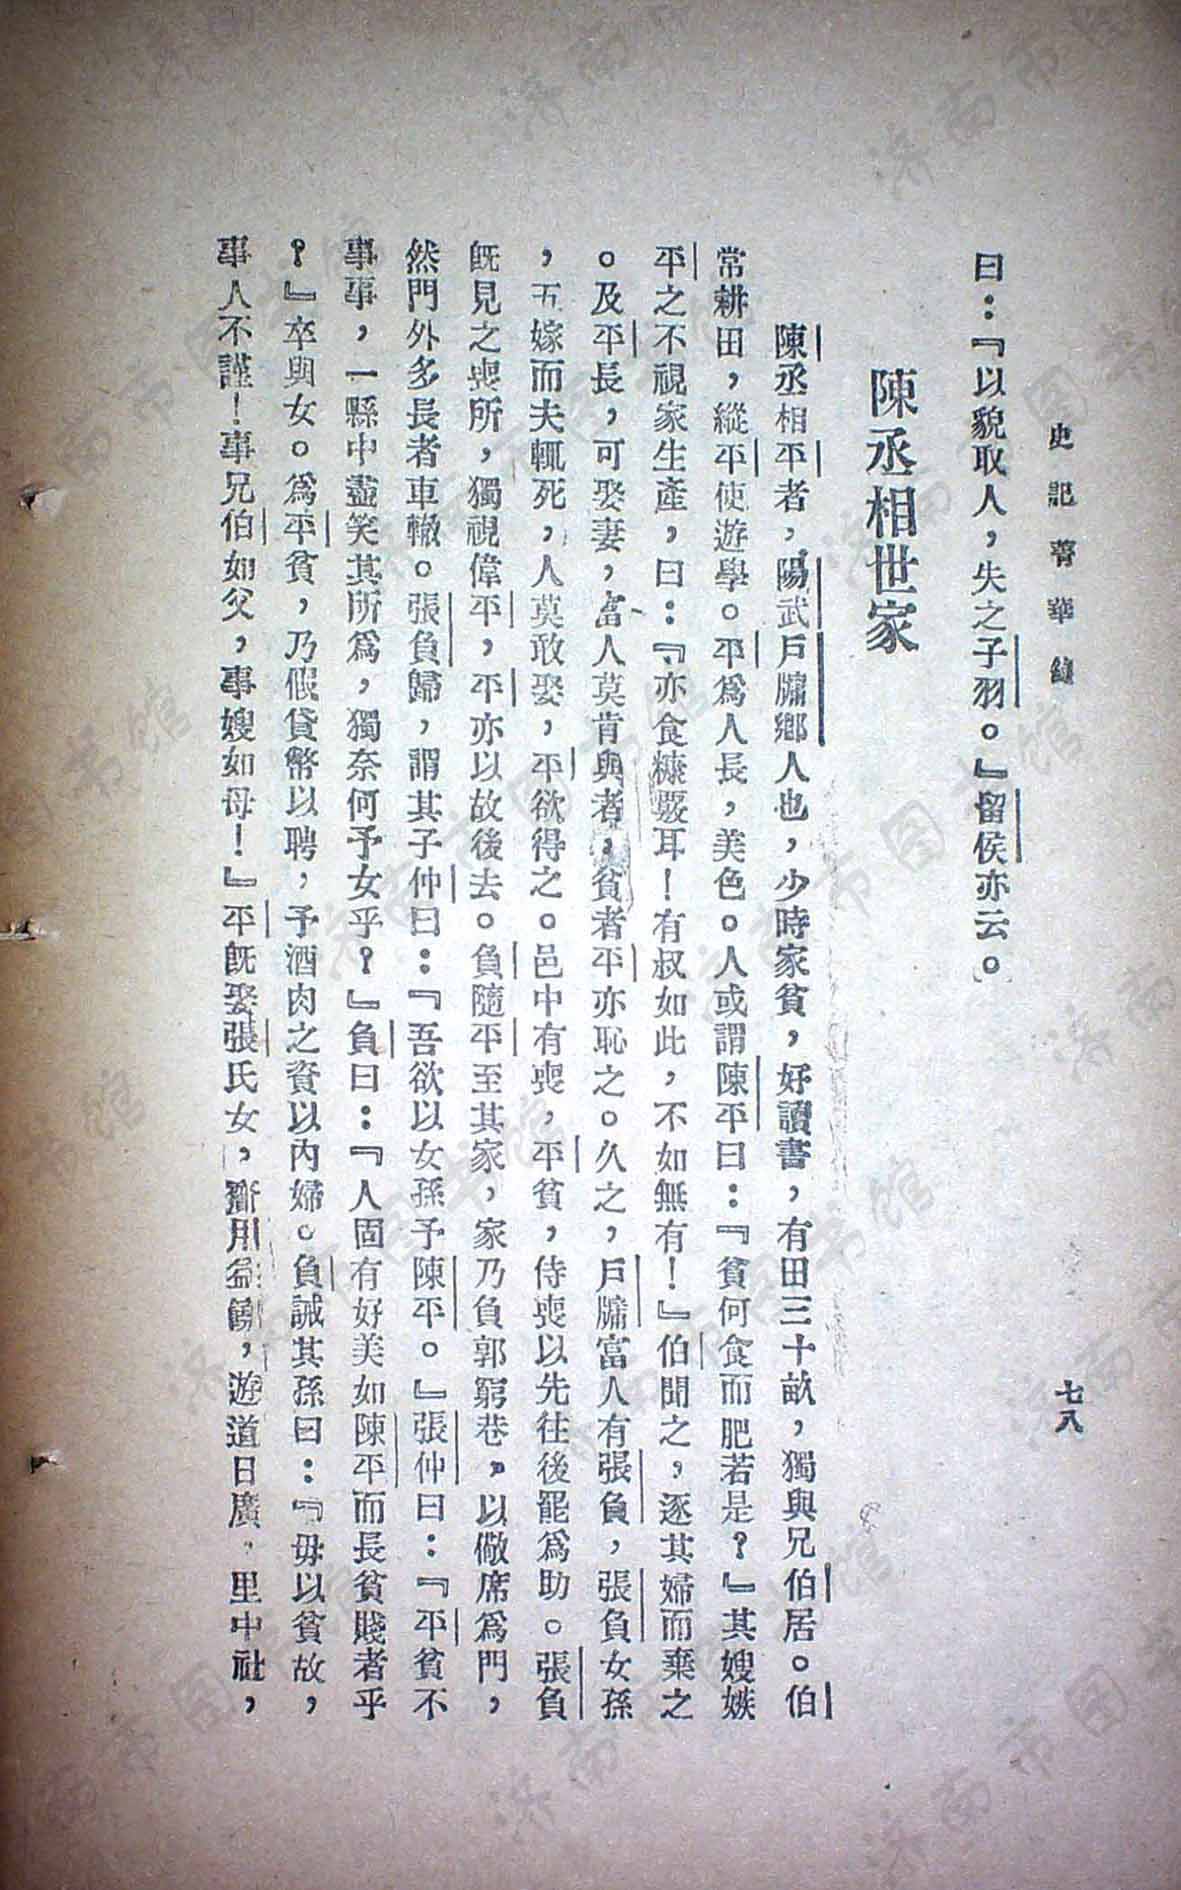 史記菁華錄
七八
曰：『以貌取人，失之子羽。』留侯亦云。
陳丞相世家
陳丞相平者，陽武戶牖鄉人也，少時家貧，好讀書，有田三十畝，獨與兄伯居。伯
常耕田，縱平使遊學。平爲人長，美色。人或謂陳平曰：『貧何食而肥若是？』其嫂嫉
平之不視家生產，曰：『亦食糠覈耳！有叔如此，不如無有！』伯聞之，逐其婦而棄之
。及平長，可娶妻，富人莫肯與者，貧者平亦恥之。久之，戶牖富人有張負，張負女孫
，五嫁而夫輒死，人莫敢娶，平欲得之。邑中有喪，平貧，侍喪以先往後罷爲助。張負
旣見之喪所，獨視偉平，平亦以故後去。負隨平至其家，家乃負郭窮巷，以儆席爲門，
然門外多長者車轍。張負歸，謂其子仲曰：『吾欲以女孫予陳平。』張仲曰：『平貧不
事事，一縣中盡笑其所爲，獨奈何予女乎？』負曰：『人固有好美如陳平而長貧賤者乎
？』卒與女。爲平貧，乃假貸幣以聘，予酒肉之資以內婦。負誡其孫曰：『毋以貧故，
事人不謹！事兄伯如父，事嫂如母！』平旣娶張氏女，齎用益饒，遊道日廣，里中社，
濟南市图书馆